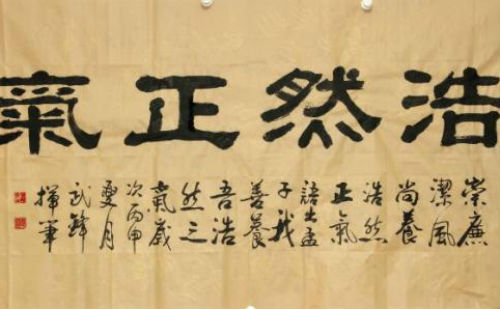 浩然正氣
崇廉
潔風
尚養
浩然
正氣
語出孟
子我
善養
吾浩
然之
氣歲
次丙申
夏月
武鋒
揮筆